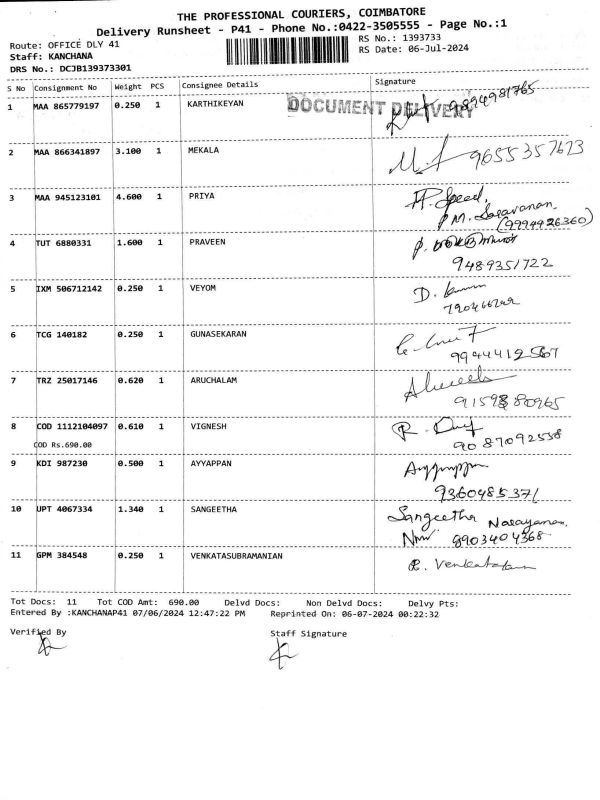 THE PROFESSIONAL COURIERS, COIMBATORE
Delivery Runsheet - P41 - Phone No.:0422-3505555 - Page No.:1
Route: OFFICE DLY 41
Staff: KANCHANA
DRS No.: DCJB139373301
RS No.: 1393733
RS Date: 06-Jul-2024
S No Consignment No Weight PCS Consignee Details Signature
1 MAA 865779197 0.250 1 KARTHIKEYAN DOCUMENT DELIVERY 9894981765
2 MAA 866341897 3.100 1 MEKALA 9655357673
3 MAA 945123101 4.600 1 PRIYA
M. Saravanan.
(9994926360)
4 TUT 6880331 1.600 1 PRAVEEN
9489351722
5 IXM 506712142 0.250 1 VEYOM D.
6 TCG 140182 0.250 1 GUNASEKARAN
7 TRZ 25017146 0.620 1 ARUCHALAM
8 COD 1112104097 0.610 1 VIGNESH R.
COD Rs.690.00 9087092538
9 KDI 987230 0.500 1 AYYAPPAN
9360485371
10 UPT 4067334 1.340 1 SANGEETHA Sangeetha Narayanan.
8903404368
11 GPM 384548 0.250 1 VENKATASUBRAMANIAN
Tot Docs: 11 Tot COD Amt: 690.00 Delvd Docs: Non Delvd Docs: Delvy Pts:
Entered By :KANCHANAP41 07/06/2024 12:47:22 PM Reprinted On: 06-07-2024 00:22:32
Verified By Staff Signature